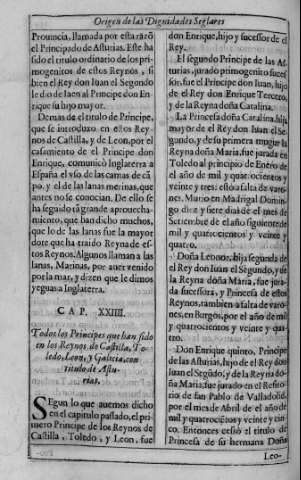 Origen de las Dignidades Seglares
Prouincia, llamada por esta razõ
el Principado de Asturias. Este ha
sido el titulo ordinario de los pri-
mogenitos de estos Reynos, si
bien el Rey don Iuan el Segundo
le dio de faen al Principe don En-
rique su hijo mayor.
Demas de el titulo de Principe,
que se introduxo en estos Rey-
nos de Castilla, y de Leon, por el
casamiento de el Principe don
Enrique, comunicò Inglaterra a
España el vso de las camas de cã-
po, y el de las lanas merinas, que
antes no se conocian. De ello se
ha seguido tã grande aprouecha-
miento, que han dicho muchos,
que lo de las lanas fue la mayor
dote que ha traido Reyna de es-
tos Reynos. Algunos llaman a las
lanas, Marinas, por auer venido
por la mar, y dizen que le dimos
yeguas a Inglaterra.
CAP. XXIIII.
Todos los Principes que han sido
en los Reynos de Castilla, To-
ledo, Leon, y Galicia, con
titulo de Astu-
rias.
SEgun lo que auemos dicho
en el capitulo passado, el pri-
mero Principe de los Reynos de
Castilla, Toledo, y Leon, fue
don Enrique, hijo y sucessor de el
Rey.
El segundo Principe de las As-
turias, jurado primogenito suces-
sor, fue el Principe don Iuan, hijo
de el Rey don Enrique Tercero,
y de la Reyna doña Catalina.
La Princesa doña Catalina, hija
mayor de el Rey don Iuan el Se-
gundo, y de su primera muger la
Reyna doña Maria, fue jurada en
Toledo al principio de Enero de
el año de mil y quatrocientos y
veinte y tres: esto a falta de varo-
nes. Murio en Madrigal Domin-
go diez y siete dias de el mes de
Setiembre de el año siguiente de
mil y quatrocientos y veinte y
quatro.
Doña Leonor, hija segunda de
el Rey don Iuan el Segundo, y de
la Reyna doña Maria, fue jura-
da sucessora, y Princesa de estos
Reynos, tambien a falta de varo-
nes, en Burgos, por el año de mil
y quatrocientos y veinte y qua-
tro.
Don Enrique quinto, Principe
de las Asturias, hijo de el Rey don
Iuan el Segũdo, y de la Reyna do-
ña Maria, fue jurado en el Refito-
rio de san Pablo de Valladolid,
por el mes de Abril de el año de
mil y quatrocientos y veinte y cin-
co. Entonces cessò el titulo de
Princesa de su hermana Doña
Leo-